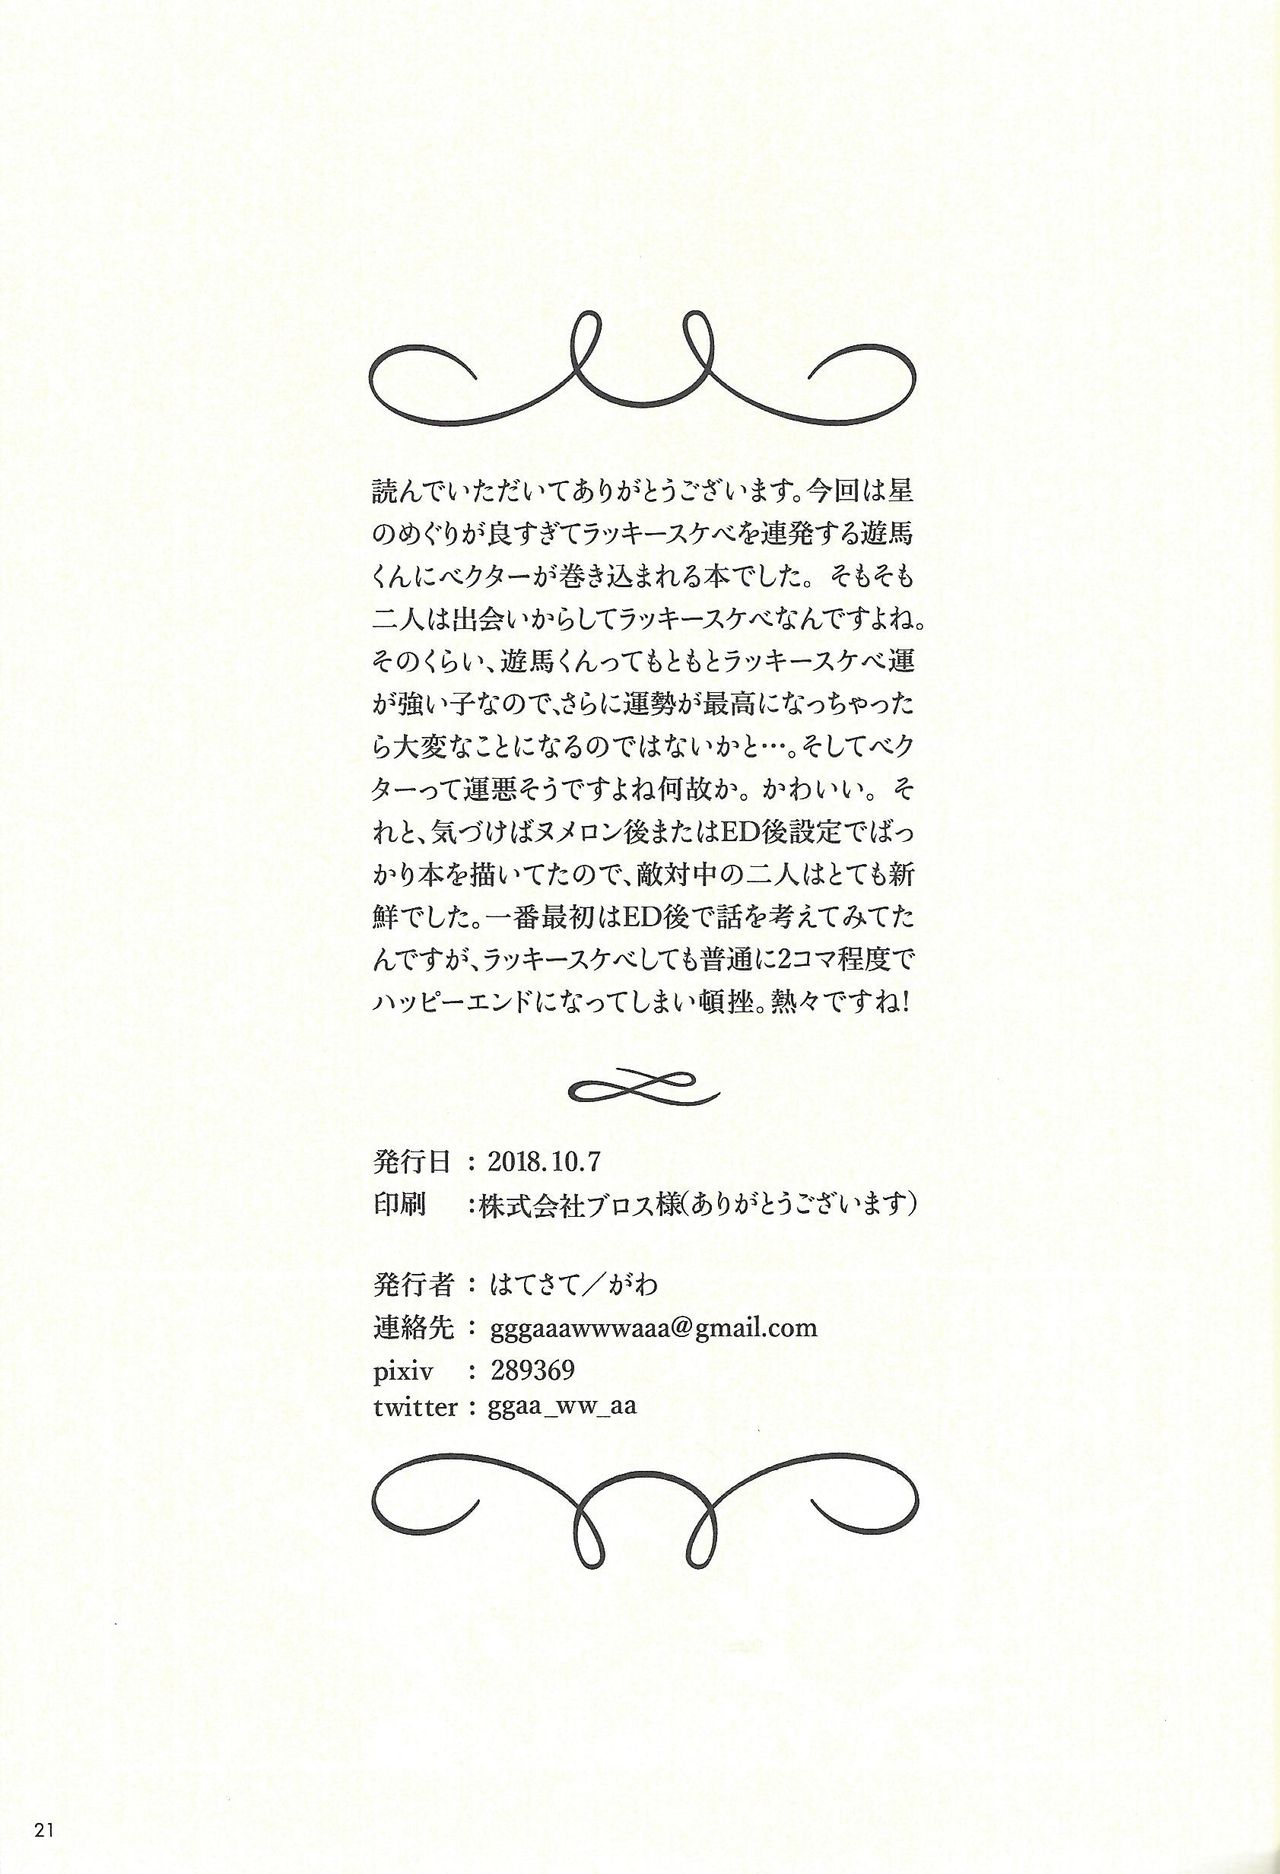 読んでいただいてありがとうございます。今回は星
のめぐりが良すぎてラッキースケベを連発する遊馬
くんにベクターが巻き込まれる本でした。そもそも
二人は出会いからしてラッキースケベなんですよね。
そのくらい、遊馬くんってもともとラッキースケベ運
が強い子なので、さらに運勢が最高になっちゃった
ら大変なことになるのではないかと…。そしてベク
ターって運悪そうですよね何故か。かわいい。そ
れと、気づけばヌメロン後またはED後設定でばっ
かり本を描いてたので、敵対中の二人はとても新
鮮でした。一番最初はED後で話を考えてみてた
んですが、ラッキースケベしても普通に2コマ程度で
ハッピーエンドになってしまい頓挫。熱々ですね!
発行日 : 2018.10.7
印刷 :株式会社ブロス様(ありがとうございます)
発行者 : はてさて/がわ
連絡先 : gggaaawwwaaa@gmail.com
pixiv : 289369
twitter : ggaa_ww_aa
21